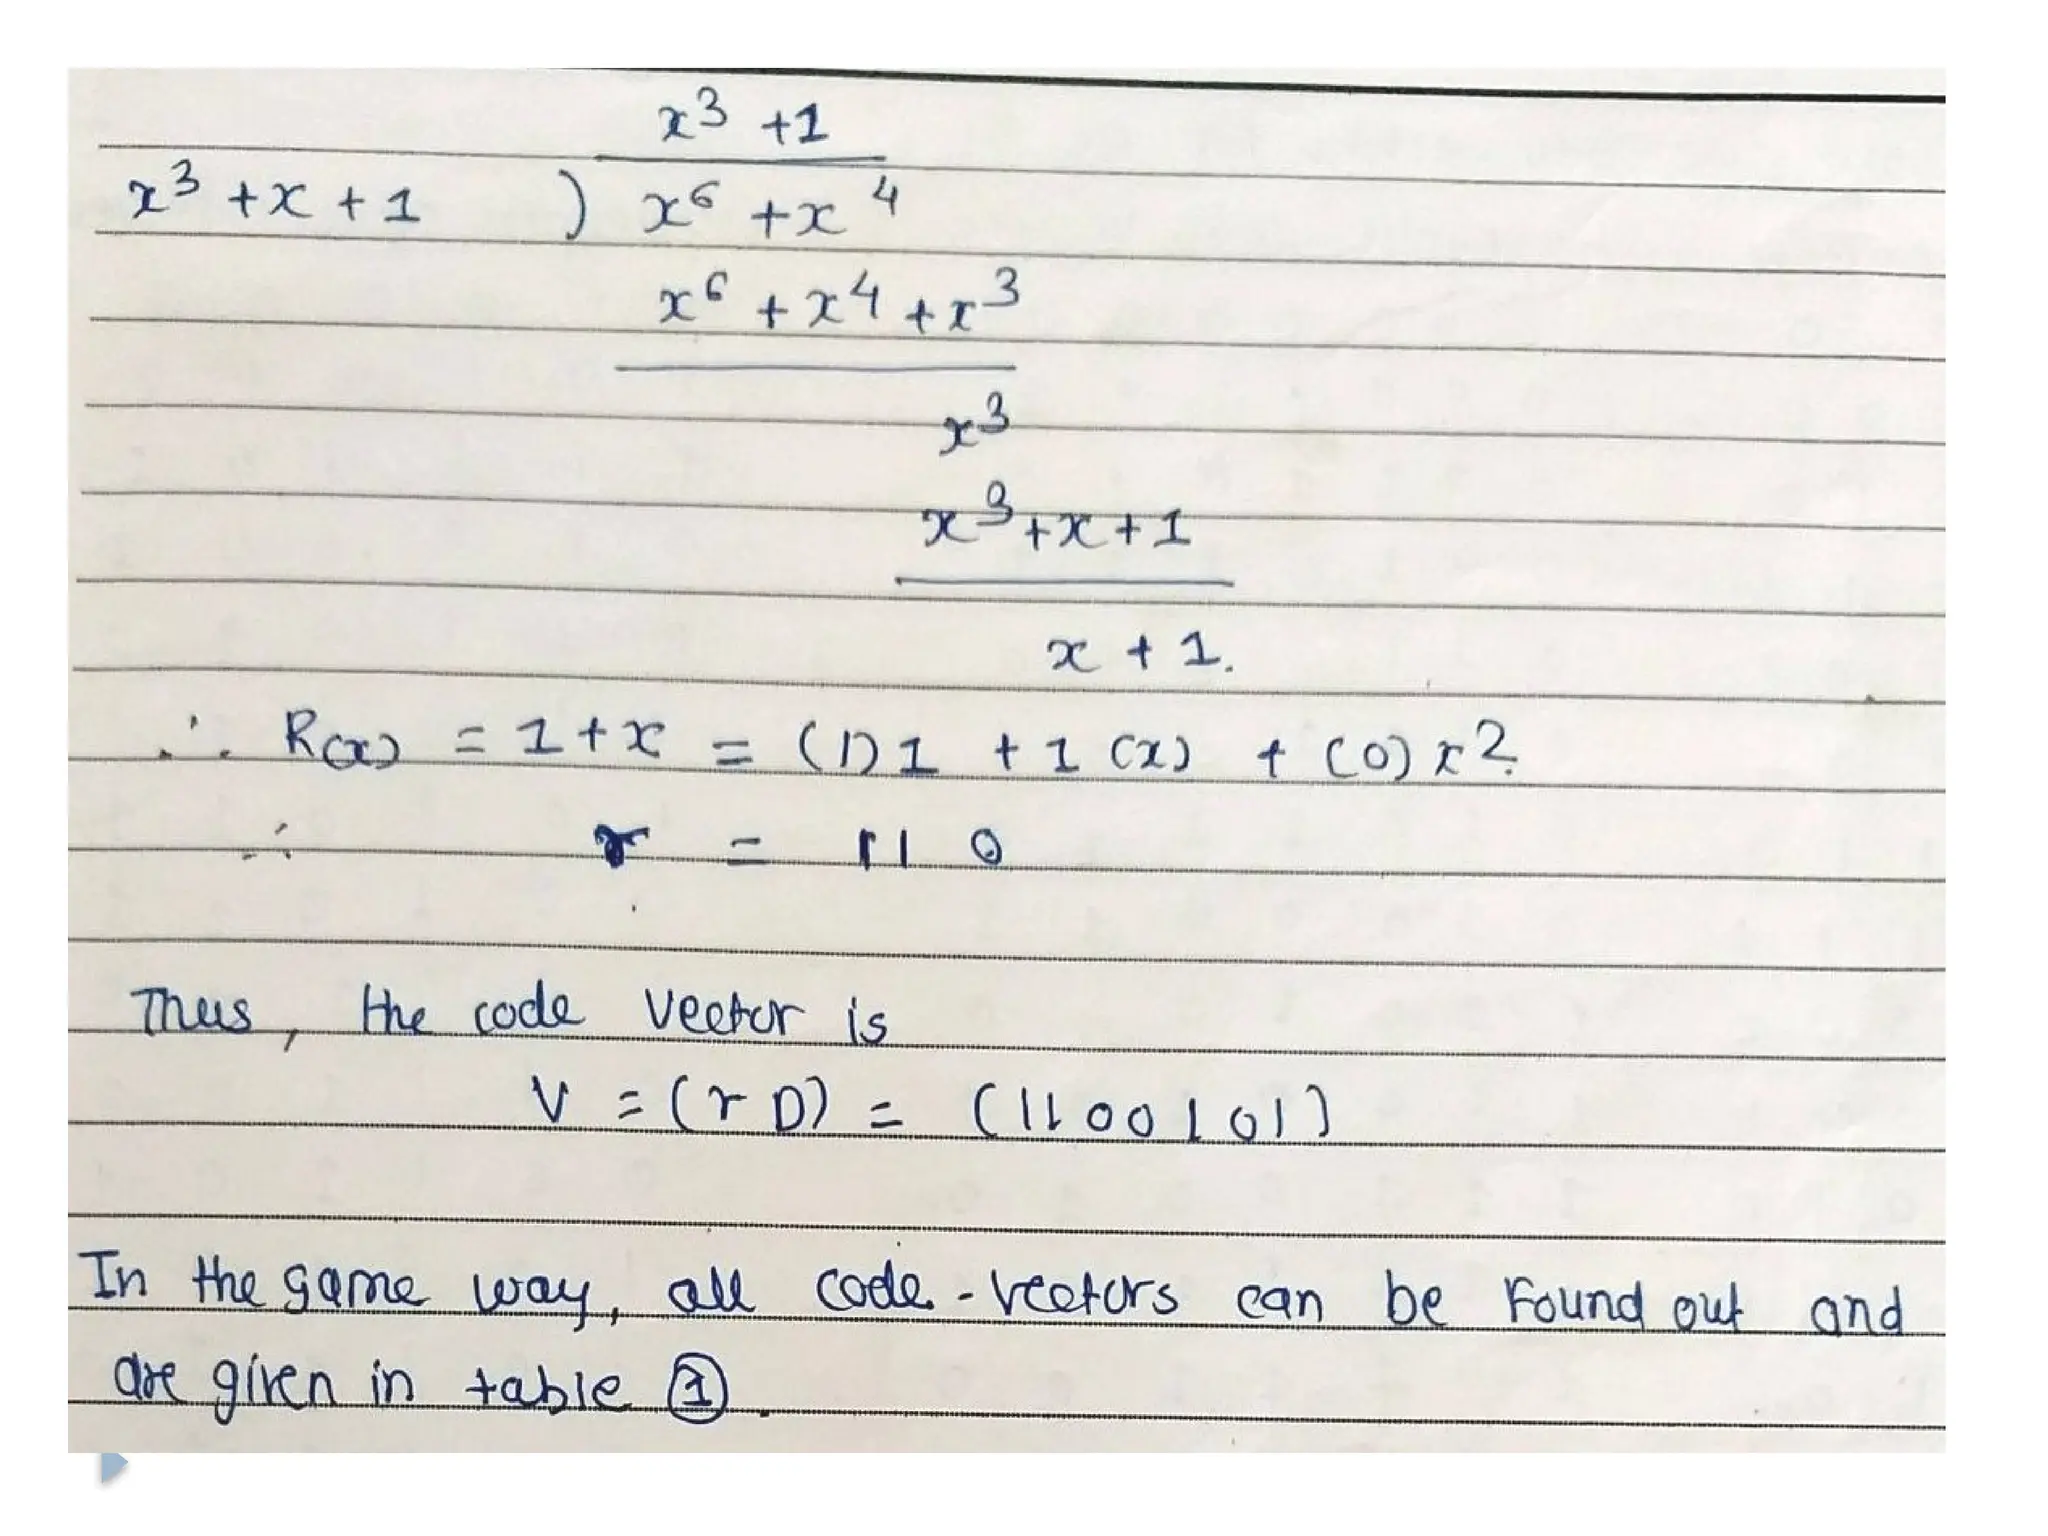 x³ + 1
x³ + x + 1 ) x⁶ + x⁴
x⁶ + x⁴ + x³
x³
x³ + x + 1
x + 1.
∴ R(x) = 1 + x = (1) 1 + 1 (x) + (0) x².
∴ r = 110
Thus, the code vector is
V = (r D) = (1100101)
In the same way, all code-vectors can be found out and
are given in table ①.